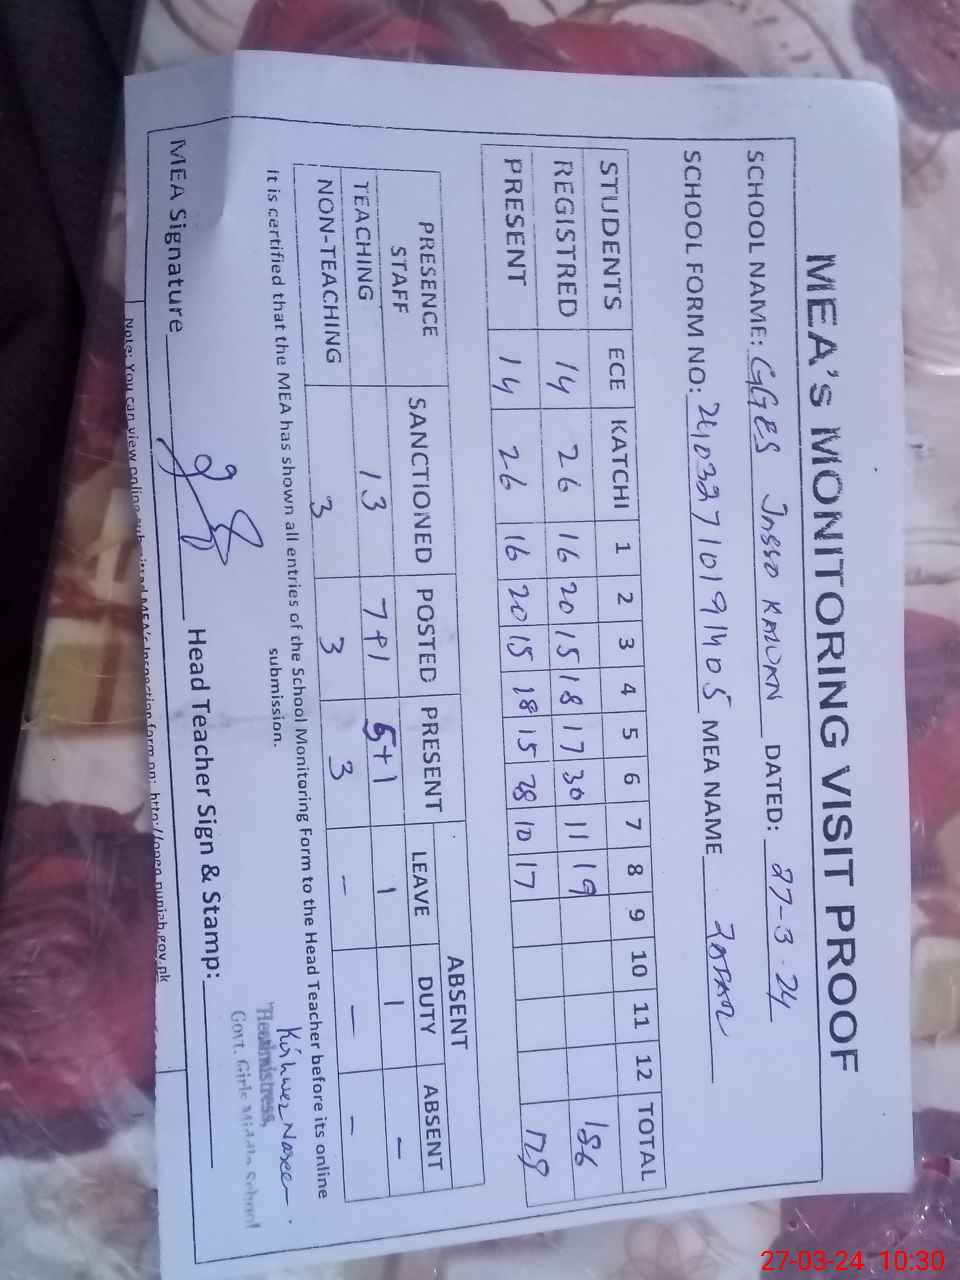 MEA'S MONITORING VISIT PROOF
SCHOOL NAME: GGES Jasso KALOKAN DATED: 27-3-24
SCHOOL FORM NO: MEA NAME
STUDENTS ECE KATCHI 1 2 3 4 5 6 7 8 9 10 11 12 TOTAL
REGISTRED 14 26 16 20 15 18 17 30 11 19 186
PRESENT 14 26 16 20 15 18 15 28 10 17 179
PRESENCE STAFF SANCTIONED POSTED PRESENT ABSENT
LEAVE DUTY ABSENT
TEACHING 13 7+1 5+1 1 1 -
NON-TEACHING 3 3 3 - - -
It is certified that the MEA has shown all entries of the School Monitoring Form to the Head Teacher before its online
submission.
Kishwer Naseer
Headmistress,
Govt. Girls Middle School
MEA Signature Head Teacher Sign & Stamp:
Note: You can view online submitted MEA's Inspection form on: http://open.punjab.gov.pk
27-03-24 10:30